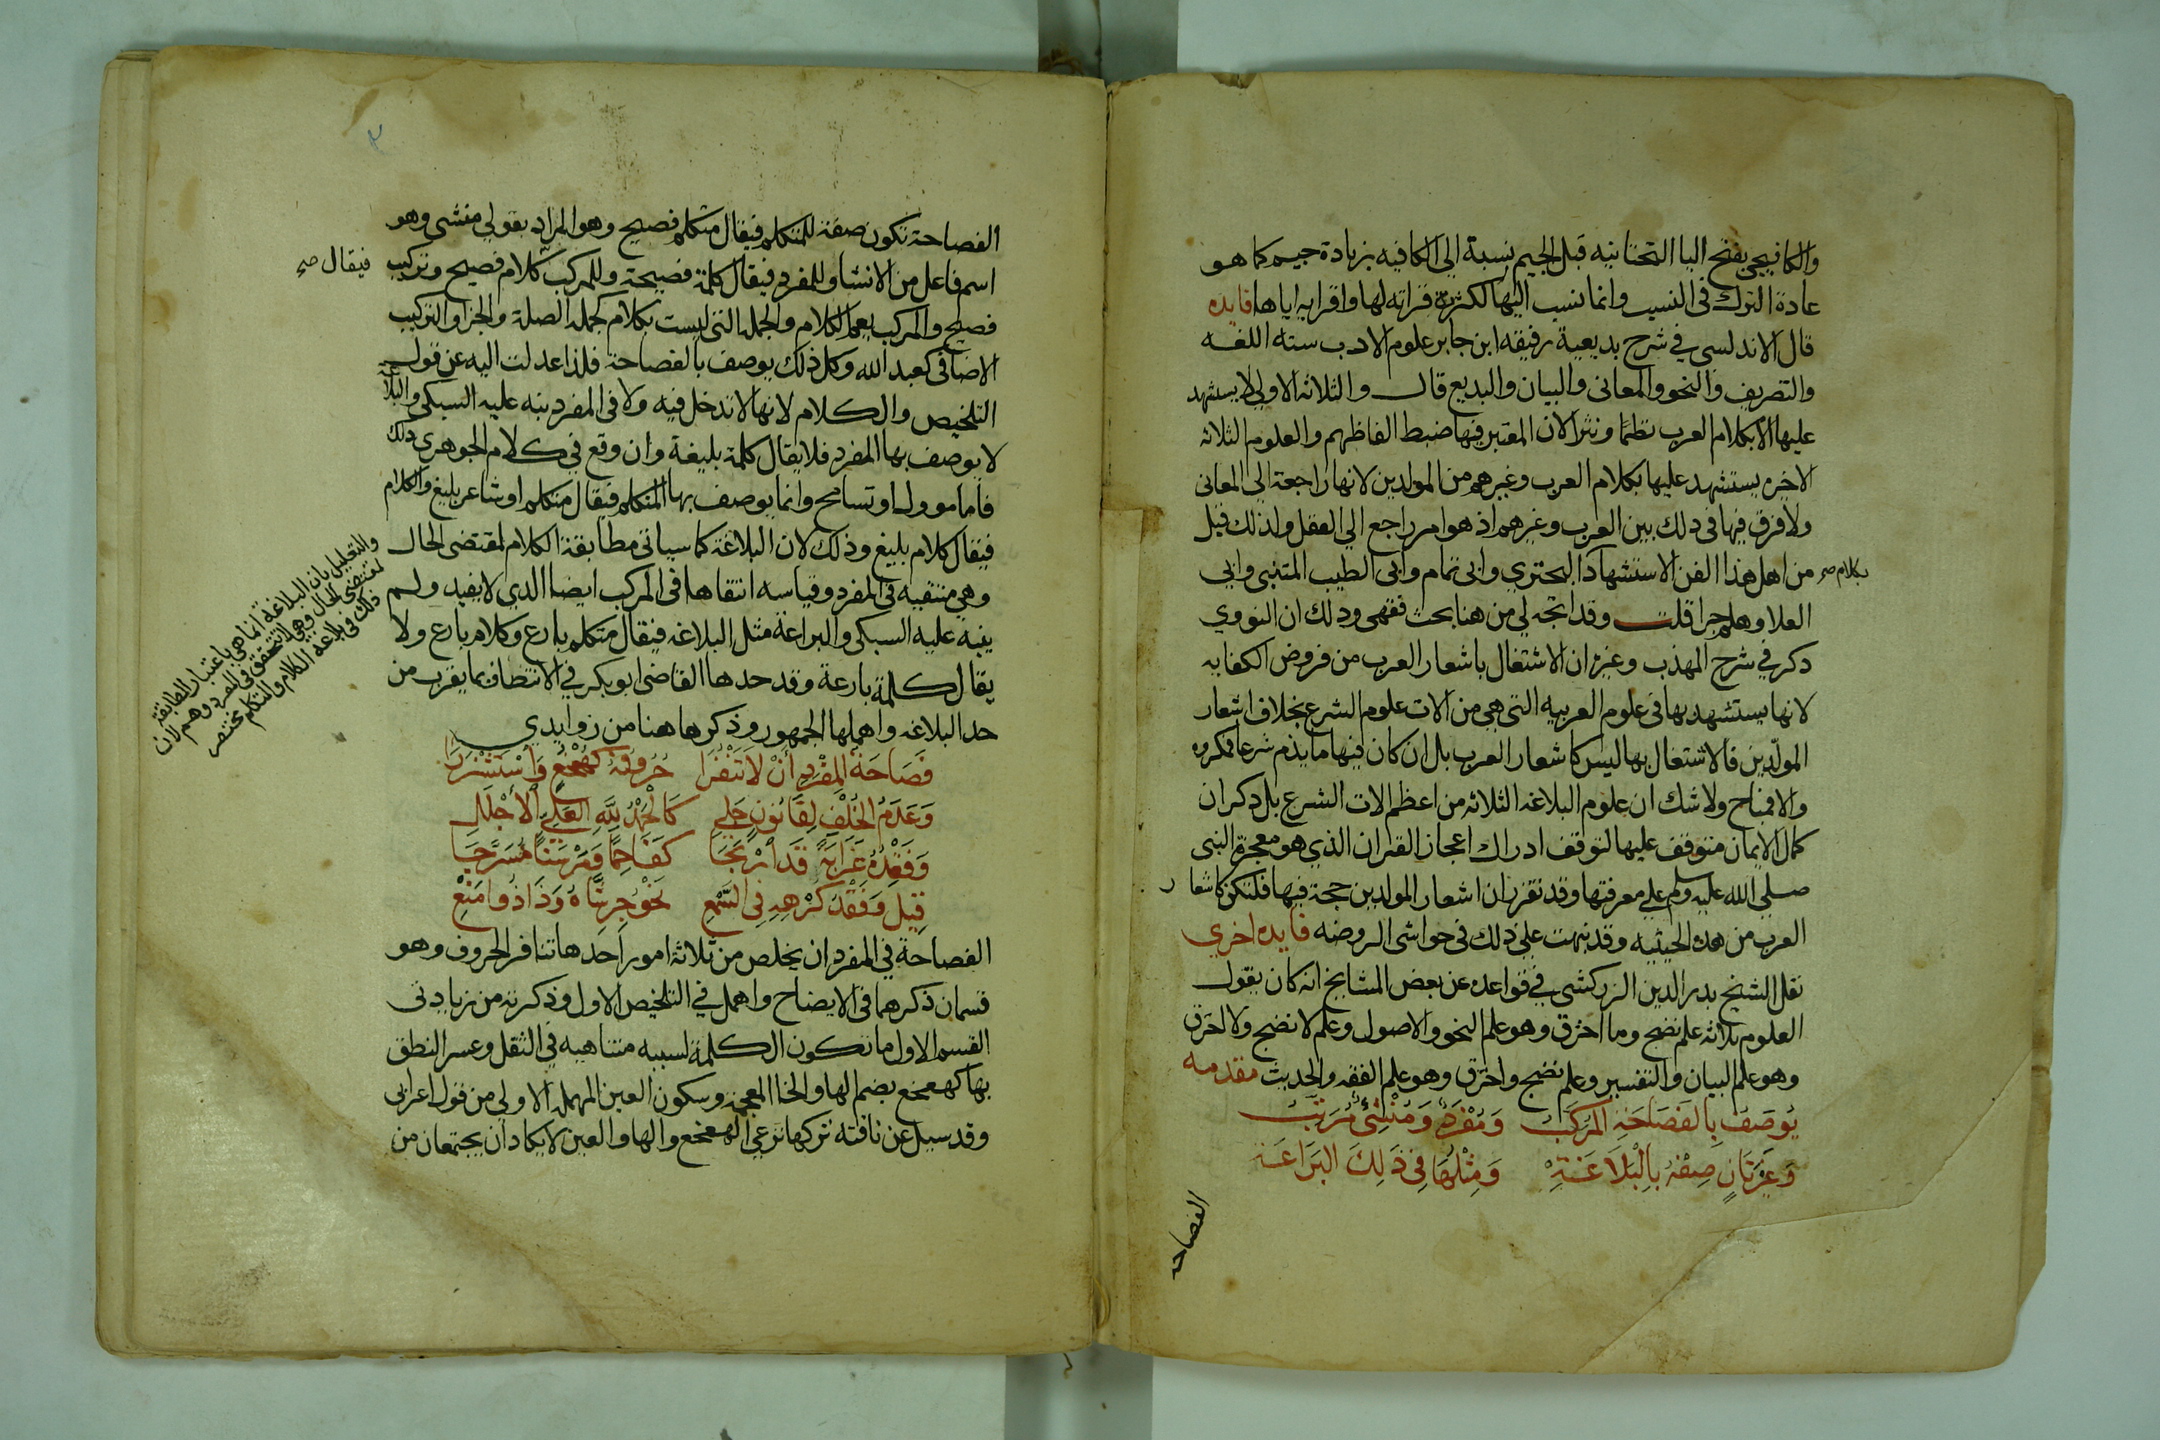 والكافيجي بفتح اليا التحتانيه قبل الجيم نسبة الى الكافيه بزيادة جيم كما هو
عادة الترك في النسب وانما نسب اليها لكثرة قراته لها واقرايه اياها فايده
قال الاندلسي في شرح بديعية رفيقه ابن جابر علوم الادب سته اللغه
والتصريف والنحو والمعاني والبيان والبديع قال والثلاثه الاولى لا يستشهد
عليها الا بكلام العرب نظما ونثرا لان المعتبر فيها ضبط الفاظهم والعلوم الثلاثه
الاخيره يستشهد عليها بكلام العرب وغيرهم من المولدين لانها راجعة الي المعاني
ولا فرق فيها في ذلك بين العرب وغيرهم اذ هو امر راجع الي العقل ولذلك قبل
من اهل هذا الفن الاستشهاد البحتري وابي تمام وابي الطيب المتنبي وابي
بكلام صح
العلا وهلم جرا قلت وقد اتجه لي من هنا بحث فقهي وذلك ان النووي
ذكر في شرح المهذب وغيره ان الاشتغال باشعار العرب من فروض الكفايه
لانها يستشهد بها في علوم العربيه التي هي من الات علوم الشرع بخلاف اشعار
المولدين فالاشتغال بها ليس كاشعار العرب بل ان كان فيها ما يذم شرعا فمكروه
والا فمباح ولا شك ان علوم البلاغه الثلاثه من اعظم الات الشرع بل ذكر ان
كمال الايمان متوقف عليها لتوقف ادراك اعجاز القران الذي هو معجزة النبي
صلي الله عليه وسلم علي معرفتها وقد تقرر ان اشعار المولدين حجة فيها فلتكن كاشعار
العرب من هذه الحيثيه وقد نبهت علي ذلك في حواشي الروضه فايده اخري
نقل الشيخ بدر الدين الزركشي في قواعده عن بعض المشايخ انه كان يقول
العلوم ثلاثه علم نضج وما احترق وهو علم النحو والاصول وعلم لا نضج ولا احترق
وهو علم البيان والتفسير وعلم نضج واحترق وهو علم الفقه والحديث مقدمه
يُوصَفُ بِالفَصَاحَةِ المُرَكَّبُ وَمُفْرَدٌ وَمُنْشِئٌ مُرَتِّبُ
وَغَيْرَ ثَانٍ صِفْهُ بِالْبَلاَغَةِ وَمِثْلُهَا فِي ذَلِكَ البَرَاعَة
الفصاحه
٢
الفصاحة تكون صفة للمتكلم فيقال متكلم فصيح وهو المراد بقولي منشي وهو
اسم فاعل من الانشا وللمفرد فيقال كلمة فصيحة وللمركب كلام فصيح وتركيب
فيقال صح
فصيح والمركب يعم الكلام والجملة التي ليست بكلام كجملة الصلة والجزا والتركيب
الاضافي كعبد الله وكل ذلك يوصف بالفصاحة فلذا عدلت اليه عن قول
التلخيص والكلام لانها لا تدخل فيه ولا في المفرد نبه عليه السبكي والبلاغة
لا يوصف بها المفرد فلا يقال كلمة بليغة وان وقع في كلام الجوهري ذلك
فاما موول او تسامح وانما يوصف بها المتكلم فيقال متكلم او شاعر بليغ والكلام
فيقال كلام بليغ وذلك لان البلاغة كما سياتي مطابقة الكلام لمقتضى الحال
وهي منتفيه في المفرد وقياسه انتفاها في المركب ايضا الذي لا يفيد ولم
ينبه عليه السبكي والبراعة مثل البلاغه فيقال متكلم بارع وكلام بارع ولا
يقال كلمة بارعة وقد حدها القاضي ابو بكر في الانتصاف بما يقرب من
حد البلاغه واهملها الجمهور وذكرها هنا من زوايدي
والتعليل بان البلاغة انما هي باعتبار المطابقة
لمقتضى الحال وهي لا تتحقق في المفرد وهم لان
ذلك في بلاغة الكلام والمتكلم مختصر
فَصَاحَةُ المُفْرَدِ أَنْ لاَ تَنْفُرَا حُرُوفُهُ كَهُعْخُعٍ وَاسْتَشْزَرَا
وَعَدَمُ الخُلْفِ لِقَانُونٍ جَلِي كَالْحَمْدُ لِلَّهِ العَلِيِّ الأَجْلَلِ
وَفَقْدُهُ غَرَابَةً قَدْ ارْتَجَا كَفَاحِمًا وَمَرْسِنًا مُسَرَّجَا
قِيلَ وَفَقْدُ كُرْهِهِ فِي السَّمْعِ نَحْوُ جِرِشَّاهُ وَذَا ذُو امَنْعِ
الفصاحة في المفرد ان يخلص من ثلاثة امور احدها تنافر الحروف وهو
قسمان ذكرهما في الايضاح واهمل في التلخيص الاول وذكرته من زيادتي
القسم الاول ما تكون الكلمة بسببه متناهيه في الثقل وعسر النطق
بها كهعخع بضم الها والخا المعجمة وسكون العين المهملة الاولي من قول اعرابي
وقد سيل عن ناقته تركتها ترعي الهعخع والها والعين لا يكاد ان يجتمعان من